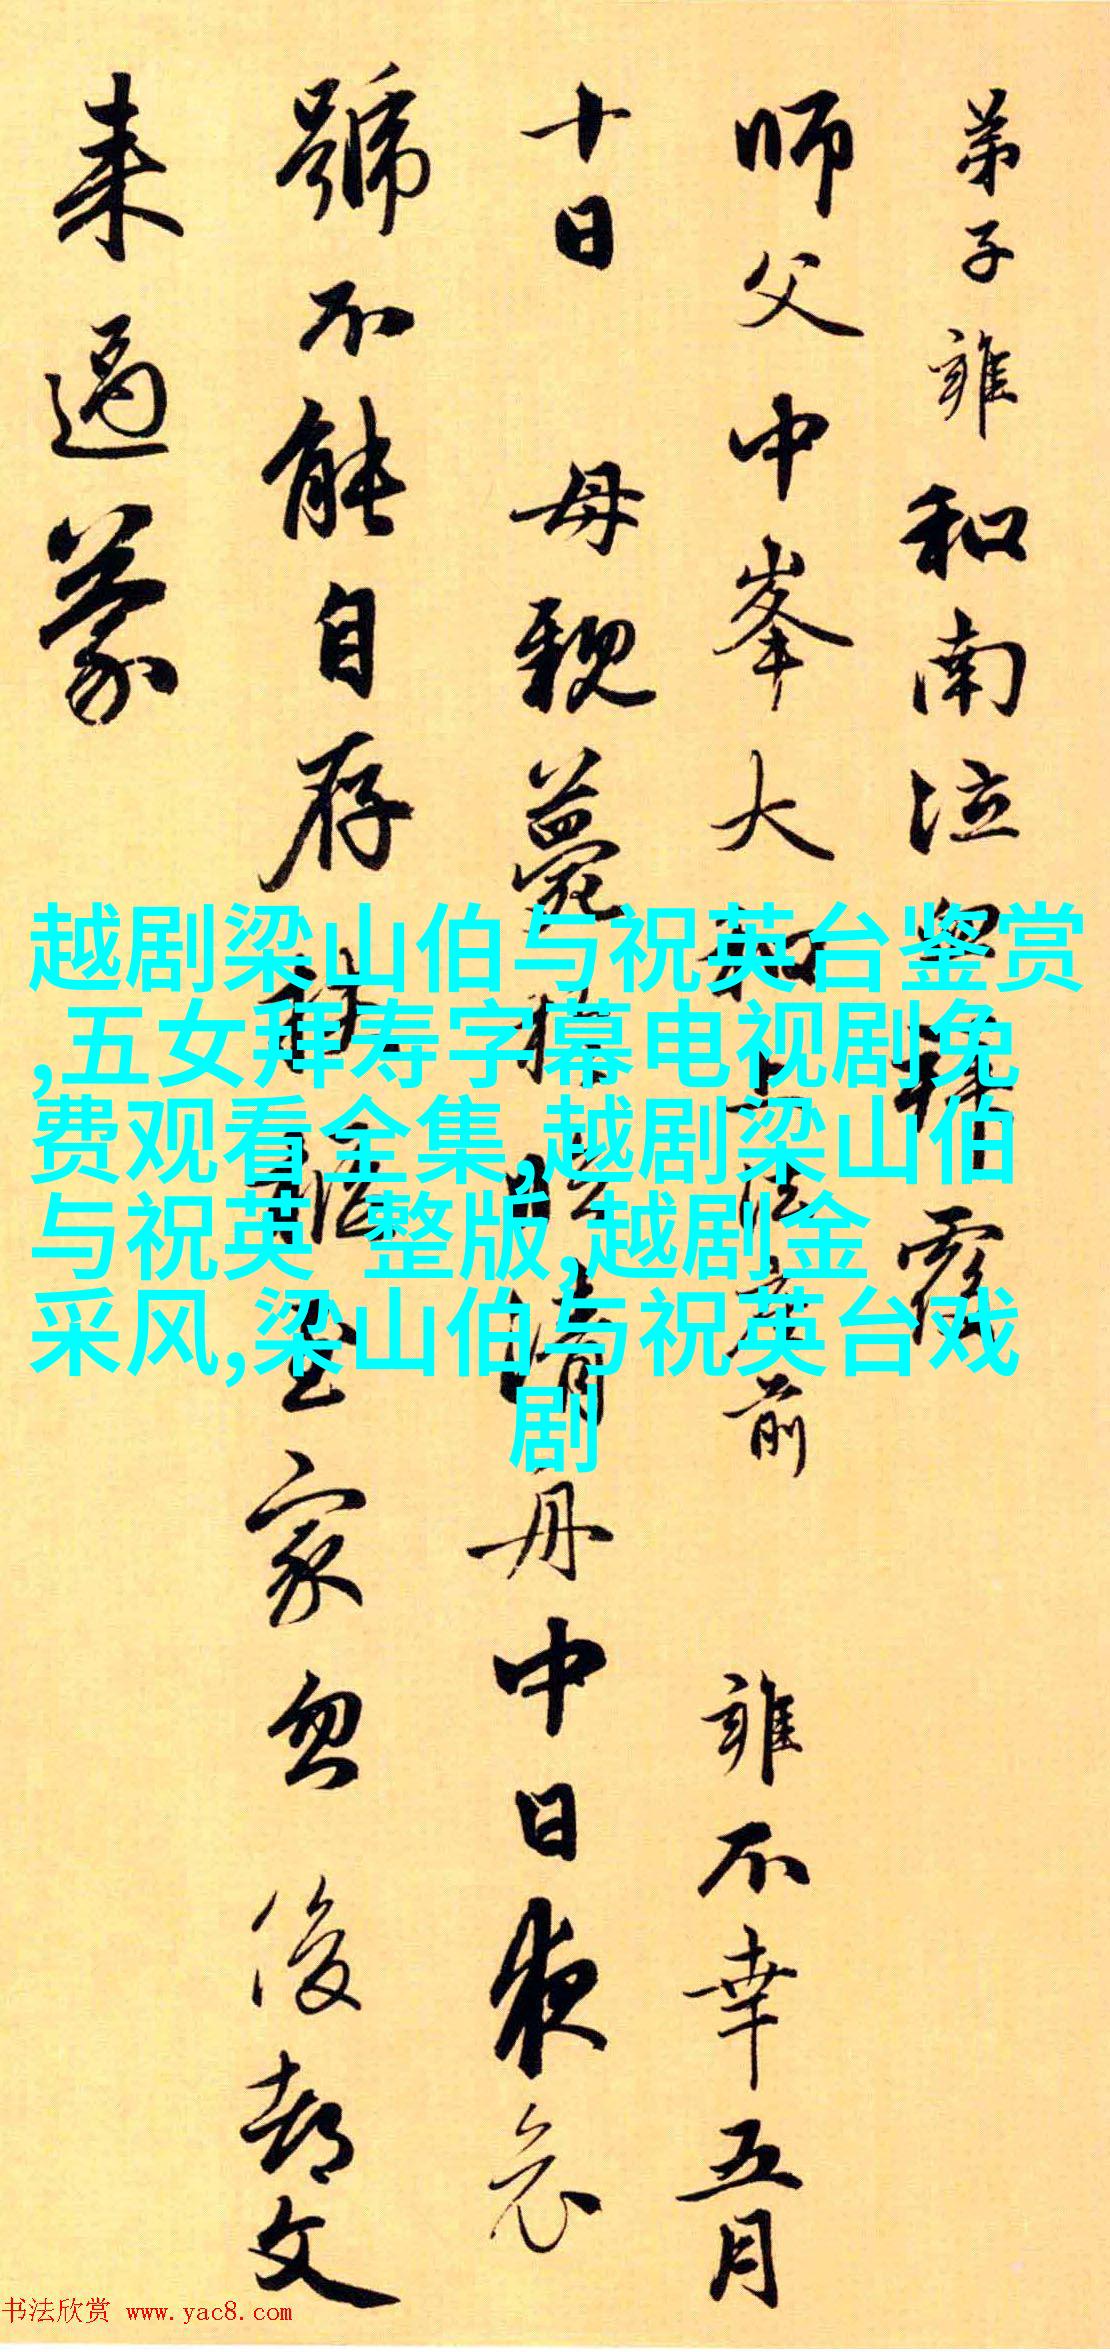 弟子雍和南泣血稽
師父中峯大和上法座前　雍不幸五月
十日　母親薨棄　晴丹中日夜哀
號不能自存　至家忽後都文
来過蒙
越剧梁山伯与祝英台鉴赏
,五女拜寿字幕电视剧免
费观看全集,越剧梁山伯
与祝英 整版,越剧金
采风,梁山伯与祝英台戏
剧
书法欣赏 www.yac8.com